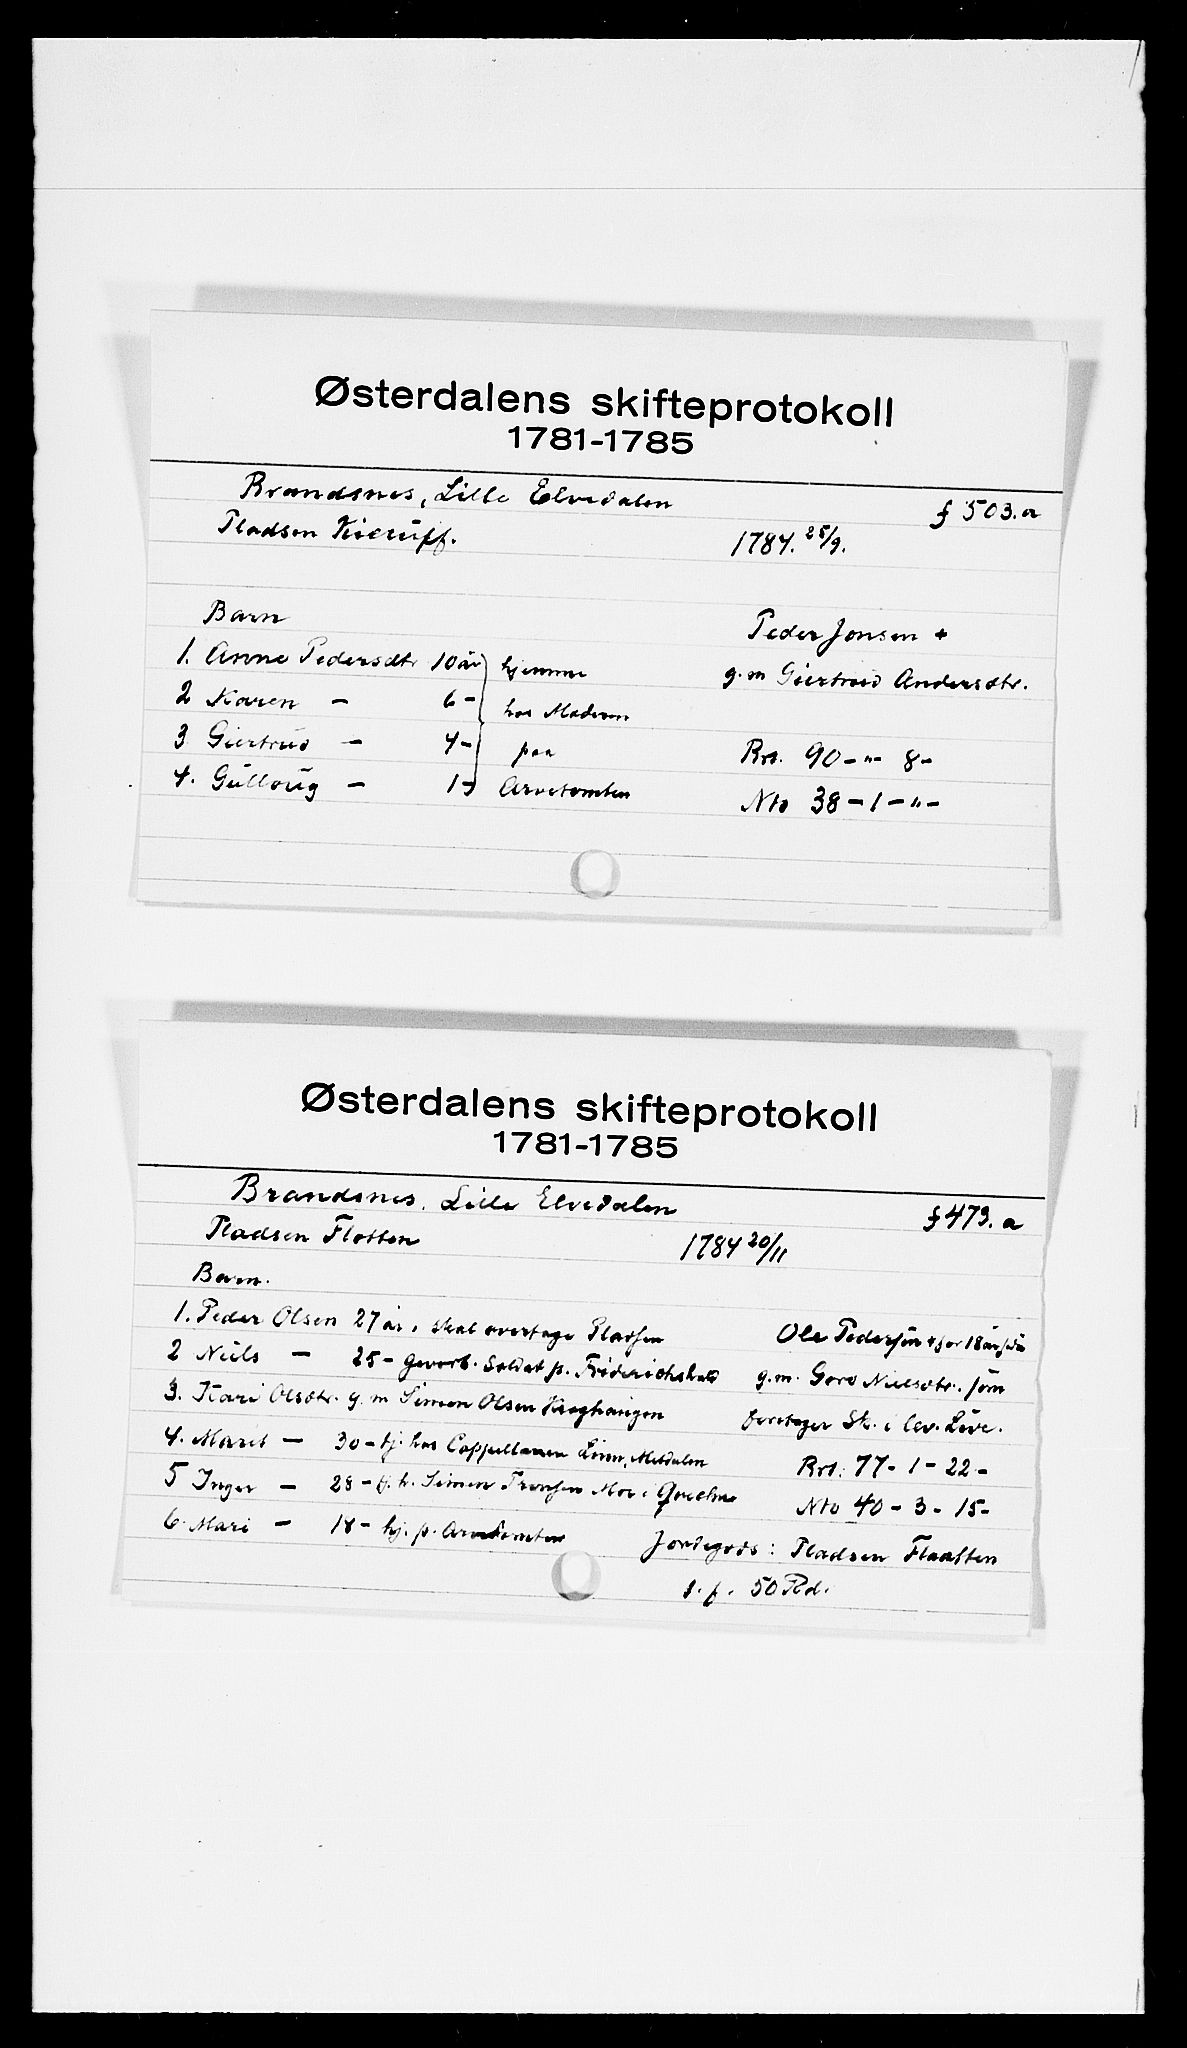 Østerdalens skifteprotokoll
1781-1785
Brandsnes, Lille Elvedalen
f 503.a
Pladsen Kierüff.
1784. 25/9.
Barn
Peder Jonsen +
1. Anne Pedersdtr 10 år hjemme
g.m Giertrud Andersdtr.
2 Karen — 6 - hos Moderen
3 Giertrud — 4 - paa
Brt. 90 - " - 8 -
4. Gulloug — 1 - Arvetomten
Nto 38 - 1 - " -
Østerdalens skifteprotokoll
1781-1785
Brandsnes, Lille Elvedalen
f 473. a
Pladsen Flotten
1784 20/11
Barn.
1. Peder Olsen 27 år, skal overtage Pladsen
Ole Pedersøn + for 18 år
2 Niels — 25 - gevorb. Soldat p. Friderichshald
g.m. Goro Nielsdtr. som
3. Kari Olsdtr. g.m Simen Olsen
foretager Sk. i lev. Live.
4. Marit — 30 - tj. hos Cappellanen Linn, Mesdalen
Brt: 77 - 1 - 22 -
5 Inger — 28 - tj. h. Simen Moe i
Nto 40 - 3 - 15 -
6. Mari — 18 - hj. p. Arvetomten
Jordegods: Pladsen Flaatten
s. f. 50 Rd.